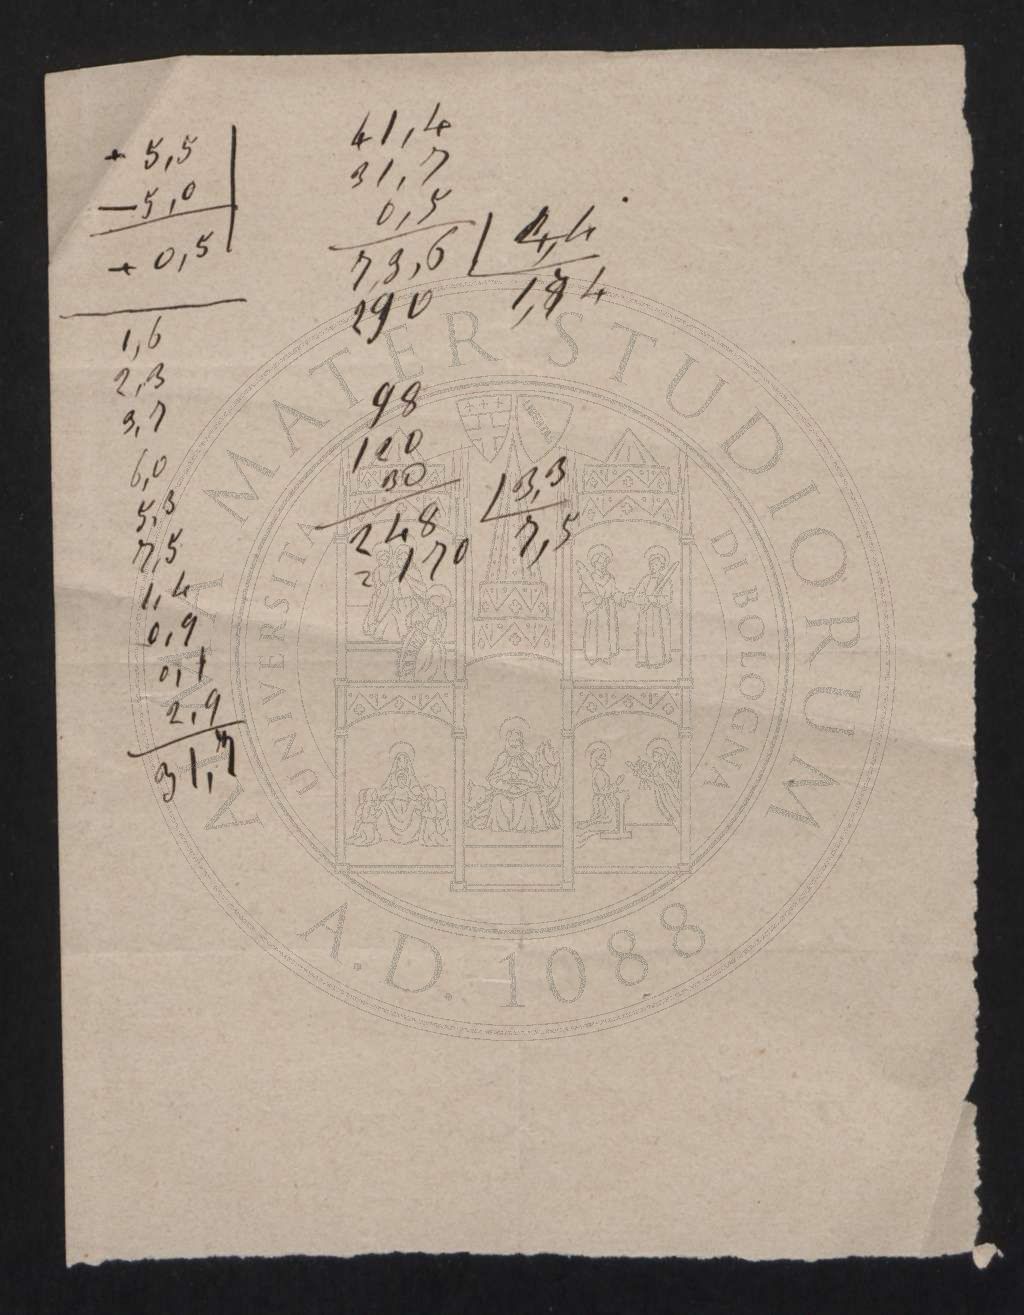 + 5,5
— 5,0
+ 0,5
1,6
2,3
3,7
6,0
5,3
7,5
1,4
0,9
0,1
2,9
31,7
41,4
31,7
0,5
73,6
290
98
120
30
248 3,3
170 7,5
ALMA MATER STUDIORUM
UNIVERSITA DI BOLOGNA
A.D. 1088